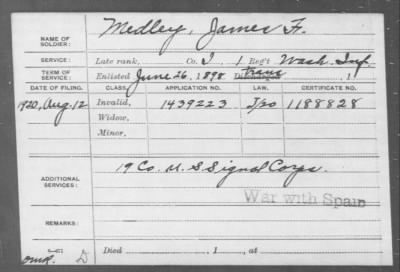 NAME OF SOLDIER: Medley, James F.
SERVICE: Late rank, Co. I, 1 Reg't Wash. Inf.
TERM OF SERVICE: Enlisted June 26, 1898 Discharged trans , 1
DATE OF FILING. CLASS. APPLICATION NO. LAW. CERTIFICATE NO.
1920, Aug. 12 Invalid, 1439223 J/20 1188828
Widow,
Minor,
ADDITIONAL SERVICES: 19 Co. U. S Signal Corps.
War with Spain
REMARKS:
Died , 1 , at